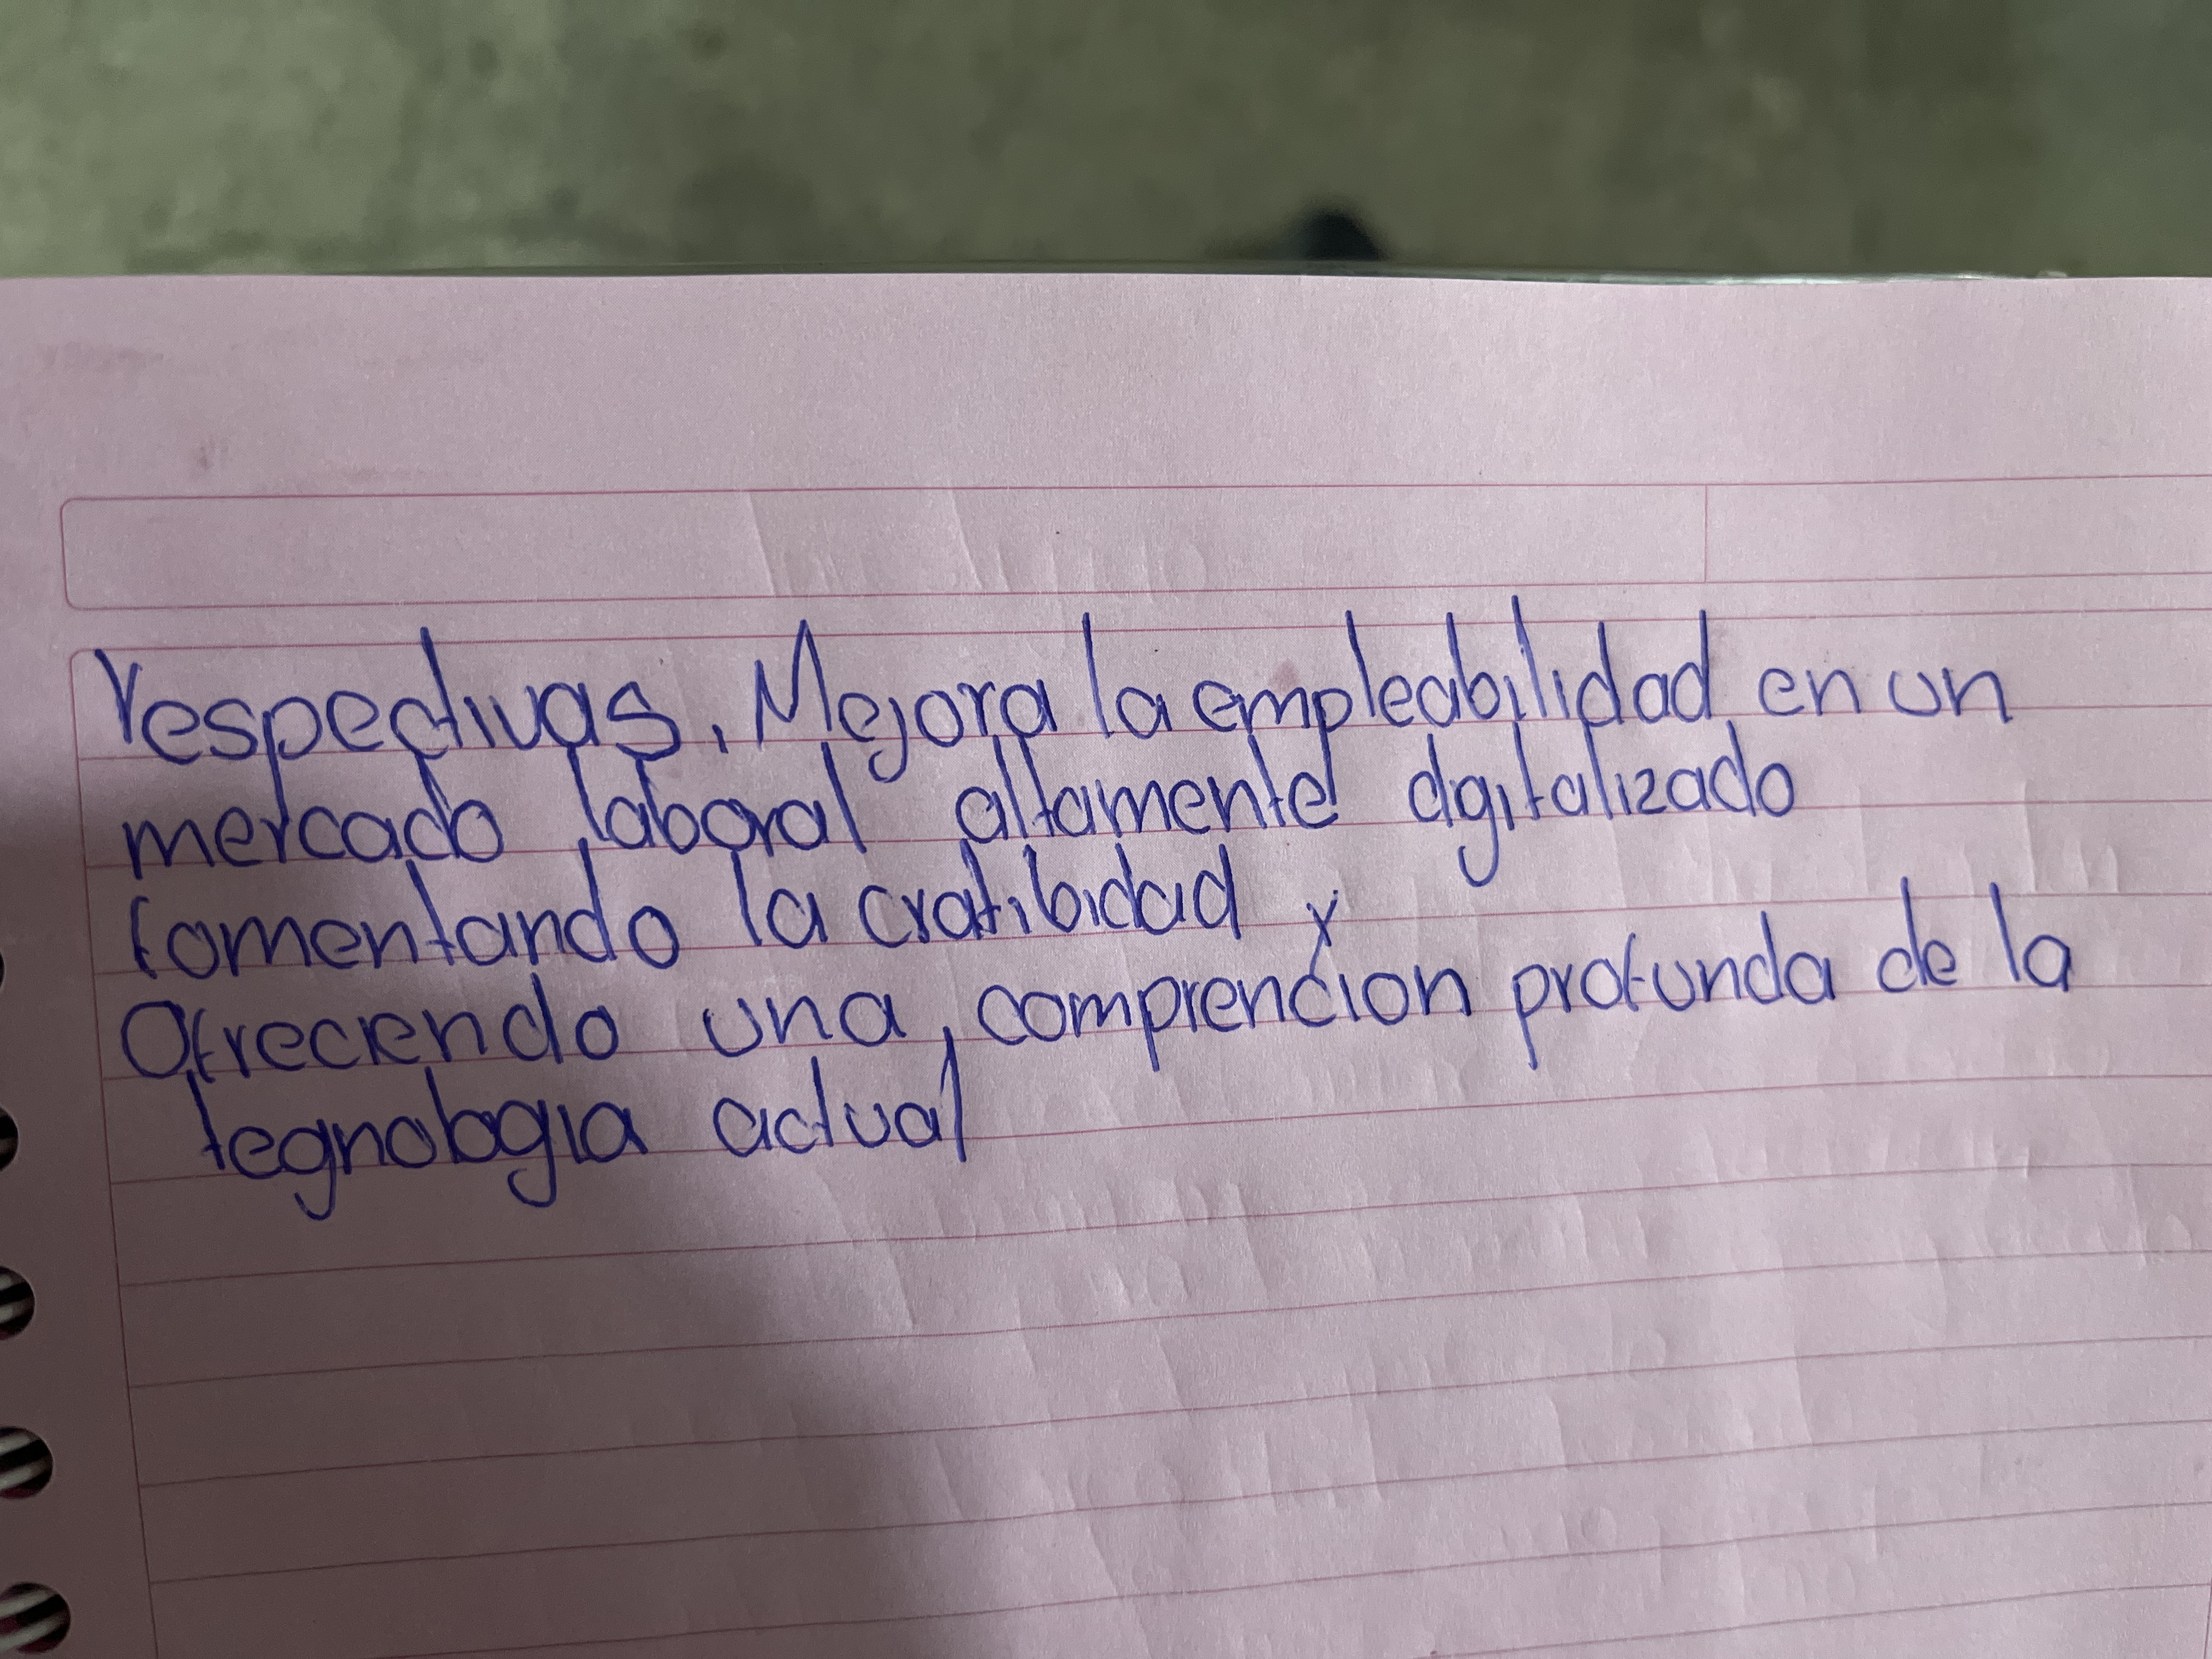 respectivas. Mejora la empleabilidad en un
mercado laboral altamente dgitalizado
fomentando la cratibidad y
Ofreciendo una comprencion profunda de la
tegnologia actual